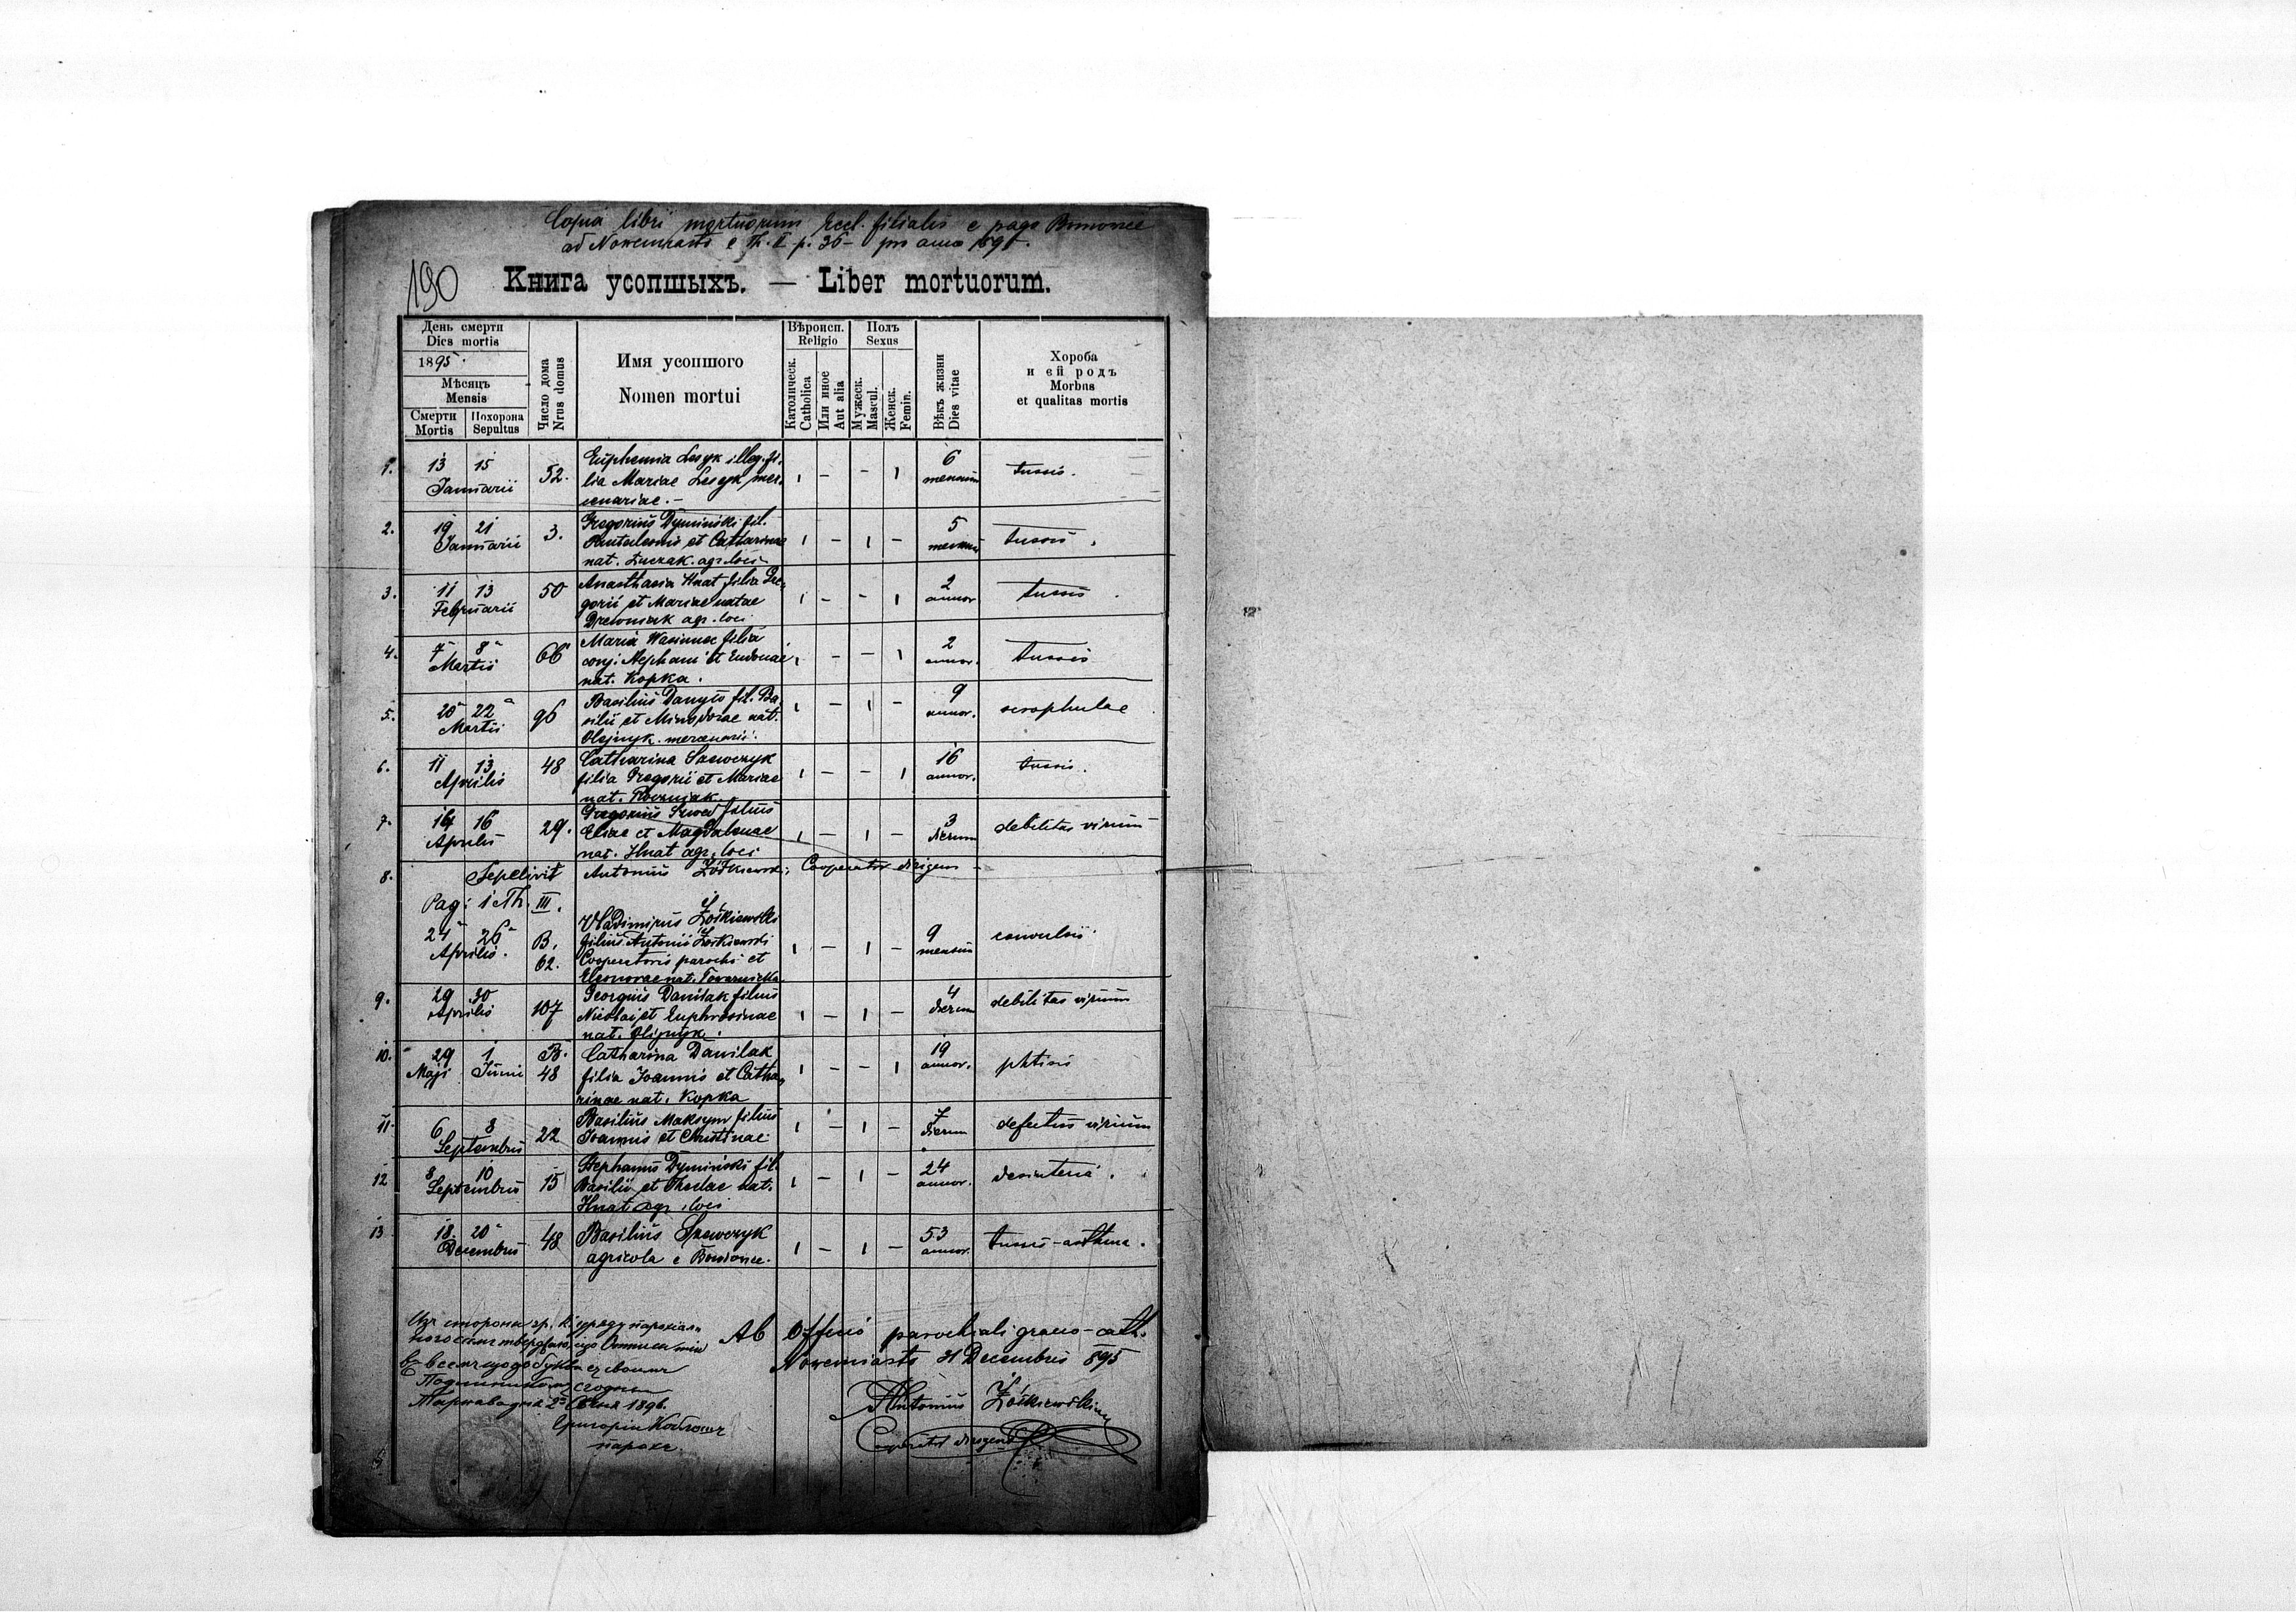 Copia libri mortuorum Eccl. filialis e pago Bonowice
ad Nowemiasto e Th. II p. 36 – pro anno 1895.
190
Книга усопшыхъ. — Liber mortuorum.
День смерти
Dies mortis
1895.
Мѣсяць
Mensis
Смерти
Mortis
Похорона
Sepultus
Число дома
Nrus domus
Имя усопшого
Nomen mortui
Вѣроисп.
Religio
Католическ.
Catholica
Или иное
Aut alia
Полъ
Sexus
Мужеск.
Mascul.
Женск.
Femin.
Вѣкъ жизни
Dies vitae
Хороба
и ей родъ
Morbus
et qualitas mortis
1. 13 15 Januarii 52. Euphemia Lesyk illeg. fi-
lia Mariae Lesyk mer-
cenariae. – 1 – – 1 6 mensium tussis.
2. 19 21 Januarii 3. Gregorius Dymiński fil.
Pantaleonis et Catharinae
nat. Łuczak agr. loci 1 – 1 – 5 mensium tussis.
3. 11 13 Februarii 50 Anasthasia Hnat filia Gre-
gorii et Mariae natae
Drewniak agr. loci 1 – – 1 2 annor. tussis.
4. 7 8 Martii 66 Maria filia
conj. Stephani et Eudoxiae
nat. Kopka. 1 – – 1 2 annor. tussis
5. 20 22 Martii 96 Basilius Danyło fil. Ba-
silii et Minodorae nat.
Olejnyk mercenarii. 1 – 1 – 9 annor. scrophulae
6. 11 13 Aprilis 48 Catharina Szewczyk
filia Gregorii et Mariae
nat. 1 – – 1 16 annor. tussis.
7. 14 16 Aprilis 29. Gregorius Szwed filius
Eliae et Magdalenae
nat. Hnat agr. loci 1 – 1 – 3 dierum debilitas virium
8. Sepelivit Antonius Żółkiewski, Cooperator dirigens –
Pag: 1 Th. III.
24 26 Aprilis. B. 62. Vladimirus Żółkiewski
filius Antonii Żółkiewski
Cooperatoris parochi et
Eleonorae nat. Towarnicka 1 – 1 – 9 mensium convulsii
9. 29 30 Aprilis 107 Georgius Danilak filius
Nicolai et Euphrosinae
nat. Olijnyk. 1 – 1 – 4 dierum debilitas virium
10. 29 Maji 1 Junii B. 48 Catharina Danilak
filia Joannis et Catha-
rinae nat. Kopka 1 – – 1 19 annor. phtisis
11. 6 8 Septembris 22 Basilius Maksym filius
Joannis et Christinae 1 – 1 – 7 dierum defectus virium
12 8 10 Septembris 15 Stephanus Dymiński fil.
Basilii et Theclae nat.
Hnat agr. loci 1 – 1 – 24 annor. desinteria.
13 18. 20 Decembris 48 Basilius Szewczyk
agricola e Bonowice. 1 – 1 – 53 annor. tussis – asthma.
Ab Officio parochiali graeco-cath.
Nowemiasto 31 Decembris 895
Antonius Żółkiewski
Cooperator dirigens
1896.
парохъ.
12